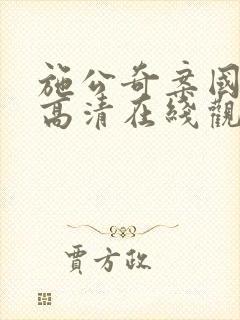 施公奇案國
高清在綫觀
賈方政